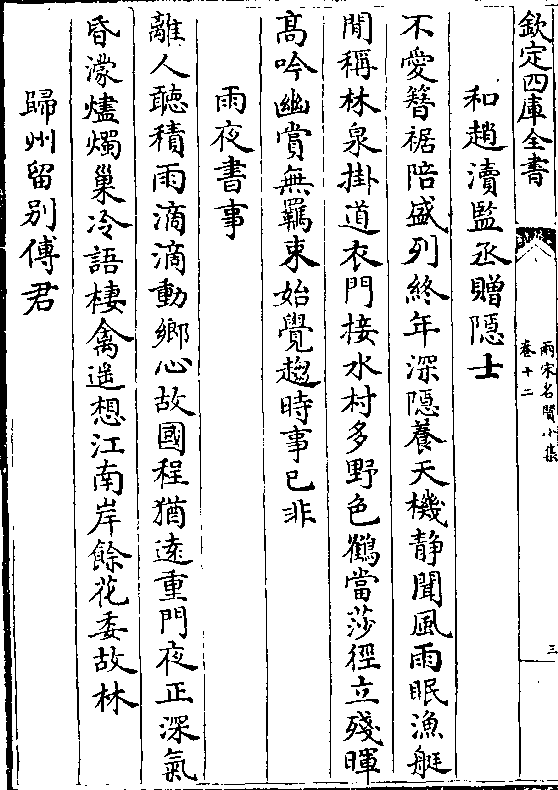 欽定四庫全書
兩宋名賢小集
卷十二
三
和趙瀆監丞贈隠士
不愛簪裾陪盛列終年深隠養天機静聞風雨眠漁艇
閒稱林泉掛道衣門接水村多野色鶴當莎徑立殘暉
髙吟幽賞無羈束始覺趨時事已非
雨夜書事
離人聽積雨滴滴動鄉心故國程猶逺重門夜正深氣
昏濛燼燭巢冷語棲禽遥想江南岸餘花委故林
歸州留别傅君